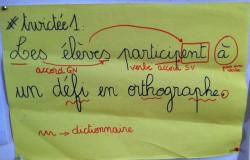 # twictée 1 :
Les élèves participent à
accord GN verbe accord SV
un défi en orthographe.
→ dictionnaire